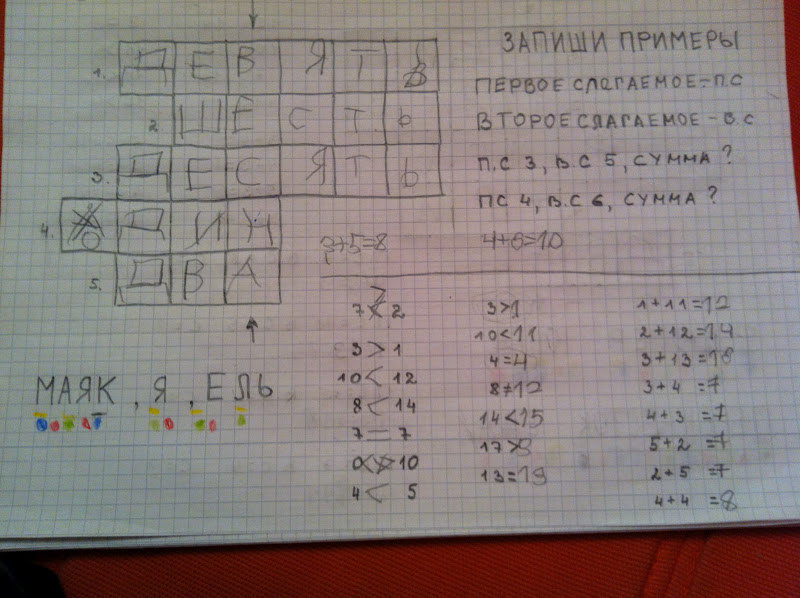 1. ДЕВЯТЬ
2 ШЕСТЬ
3. ДЕСЯТЬ
4. ОДИН
5. ДВА
МАЯК, Я, ЕЛЬ
ЗАПИШИ ПРИМЕРЫ
ПЕРВОЕ СЛАГАЕМОЕ-П.С
ВТОРОЕ СЛАГАЕМОЕ-В.С
П.С 3, В.С 5, СУММА?
ПС 4, В.С 6, СУММА?
3+5=8
4+6=10
7 > 2
3 > 1
10 < 12
8 < 14
7 = 7
0 < 10
4 < 5
3>1
10<11
4=4
8≠12
14<15
17>
13=13
1+11=12
2+12=14
3+13=16
3+4=7
4+3=7
5+2=7
2+5=7
4+4=8